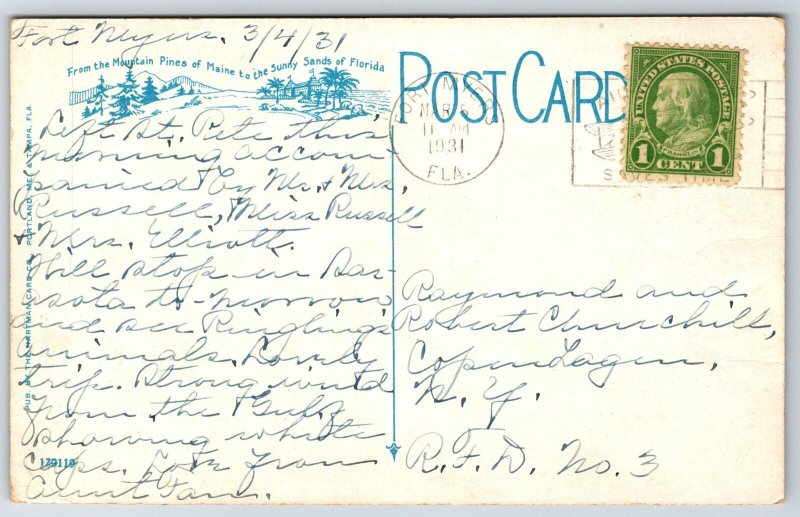 Fort Myers, 3/4/31
From the Mountain Pines of Maine to the Sunny Sands of Florida
Left St. Pete this
morning accom-
panied by Mr. & Mrs.
Russell, Miss Russell
& Mrs. Elliott.
Will stop in Sar-
sota to-morrow
and see Ringling's
animals. Lovely
trip. Strong wind
from the Gulf
showing white
caps. Love from
Aunt Fan.
PUB. BY THE HARTMAN CARD CO., PORTLAND, ME. & TAMPA, FLA.
129119
POST CARD
FORT MYERS
MAR 5
11 AM
1931
FLA.
AIR
SAVES TIME
UNITED STATES POSTAGE
FRANKLIN
1 CENT 1
Raymond and
Robert Churchill,
Copenhagen,
N. Y.
R.F.D. No. 3